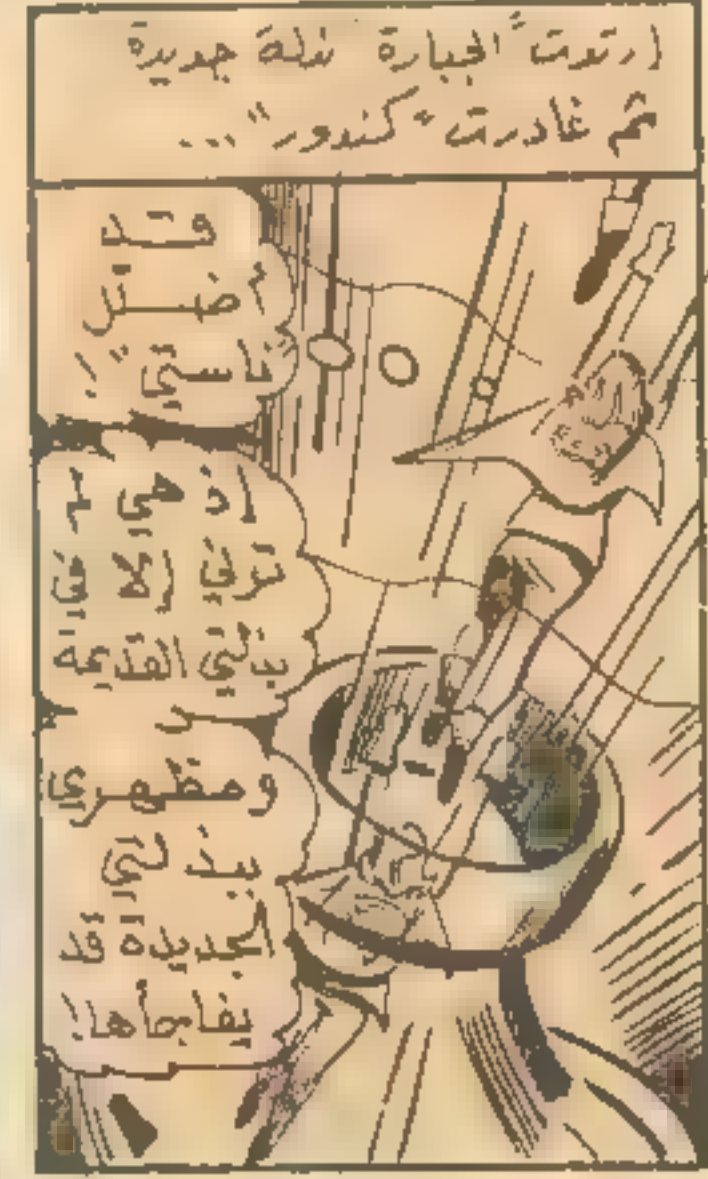 ارتدت "الجبارة" بذلة جديدة
ثم غادرت "كندور"...
قد
تضل
ناستي"!
إذ هي لم
ترني إلا في
بذلتي القديمة
ومظهري
ببذلتي
الجديدة قد
يفاجأها!